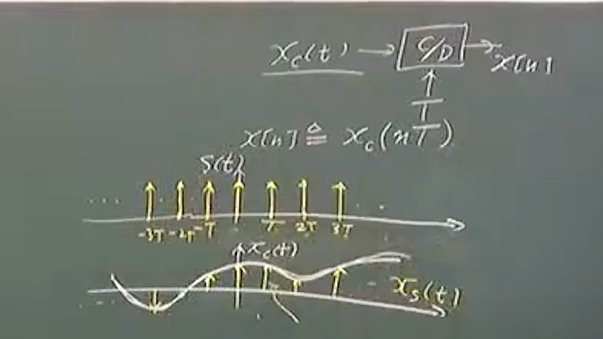 x_c(t) → C/D → x[n]
T
x[n] ≜ x_c(nT)
s(t)
... -3T -2T -T T 2T 3T ...
x_c(t)
x_s(t)